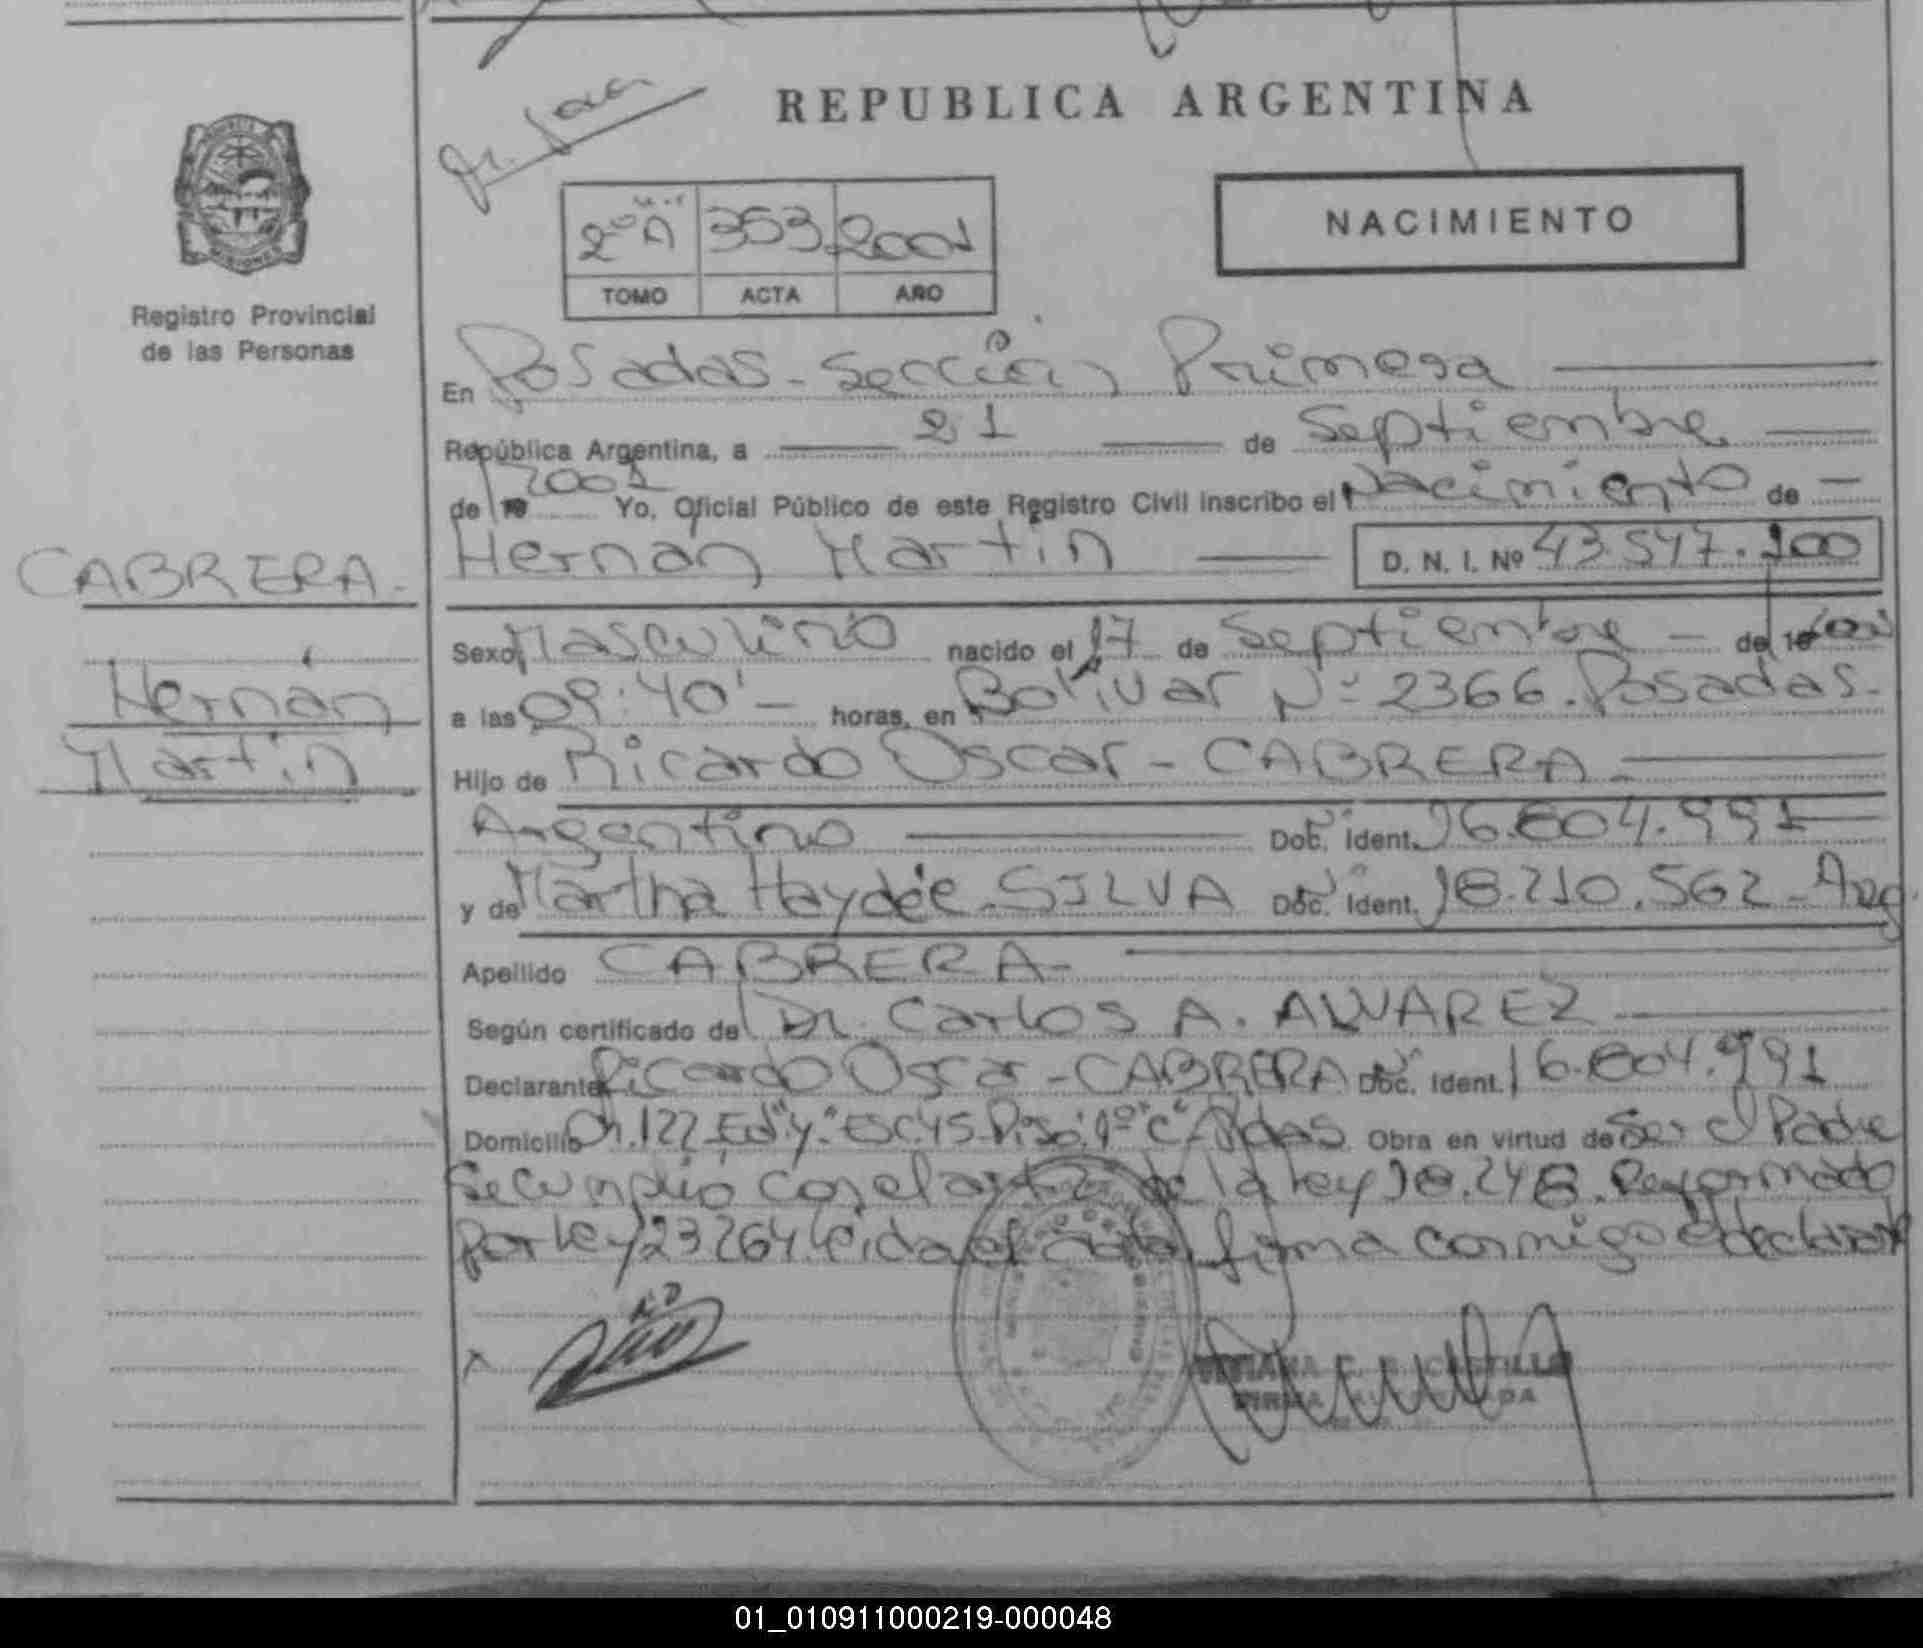 REPUBLICA ARGENTINA
NACIMIENTO
2º A 353 2001
TOMO ACTA AÑO
Registro Provincial
de las Personas
En Posadas - Sección Primera
República Argentina, a 21 de Septiembre
de 19 2001 Yo, Oficial Público de este Registro Civil inscribo el Nacimiento de
Hernán Martin D. N. I. Nº 43.547.100
CABRERA.
Hernán
Martin
Sexo Masculino nacido el 17 de Septiembre de 19 2001
a las 09:40' horas, en Bolivar Nº 2366. Posadas.
Hijo de Ricardo Oscar - CABRERA
Argentino Doc. Ident. 16.804.991
y de Martha Haydée - SILVA Doc. Ident. 18.210.562 - Arg.
Apellido CABRERA
Según certificado de Dr. Carlos A. ALVAREZ
Declarante Ricardo Oscar - CABRERA Doc. Ident. 16.804.991
Domicilio Ch. 122 Ed "4" Esc 45 Piso 1º "C" Pdas Obra en virtud de Ser el Padre
Se cumplió con el art 2 de la ley 18.248. Reformado
por ley 23264 leida el acta firma conmigo el declarante
X
FIRMA AUTORIZADA
01_010911000219-000048